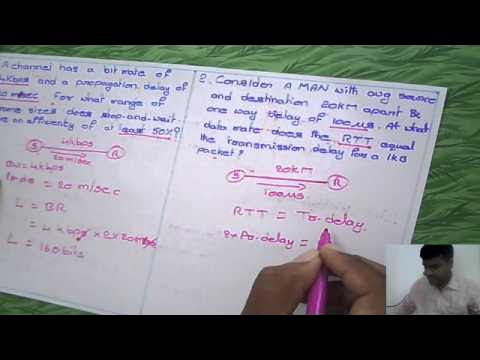 A channel has a bit rate of
4Kbps and a propagation delay of
20 msec For what range of
frame sizes does stop-and-wait
an efficiency of at least 50%?
4kbps
S R
20m/sec
BW=4kbps
= 20 m/sec
L = BR
= 4 kbps x 2 x 20ms
L = 160 bits
2. Consider A MAN with avg source
and destination 20KM apart &
one way delay of 100μs. At what
data rate does the RTT equal
the transmission delay for a 1KB
packet?
20KM
S R
100μs
RTT = Tr. delay.
2xPr.delay =